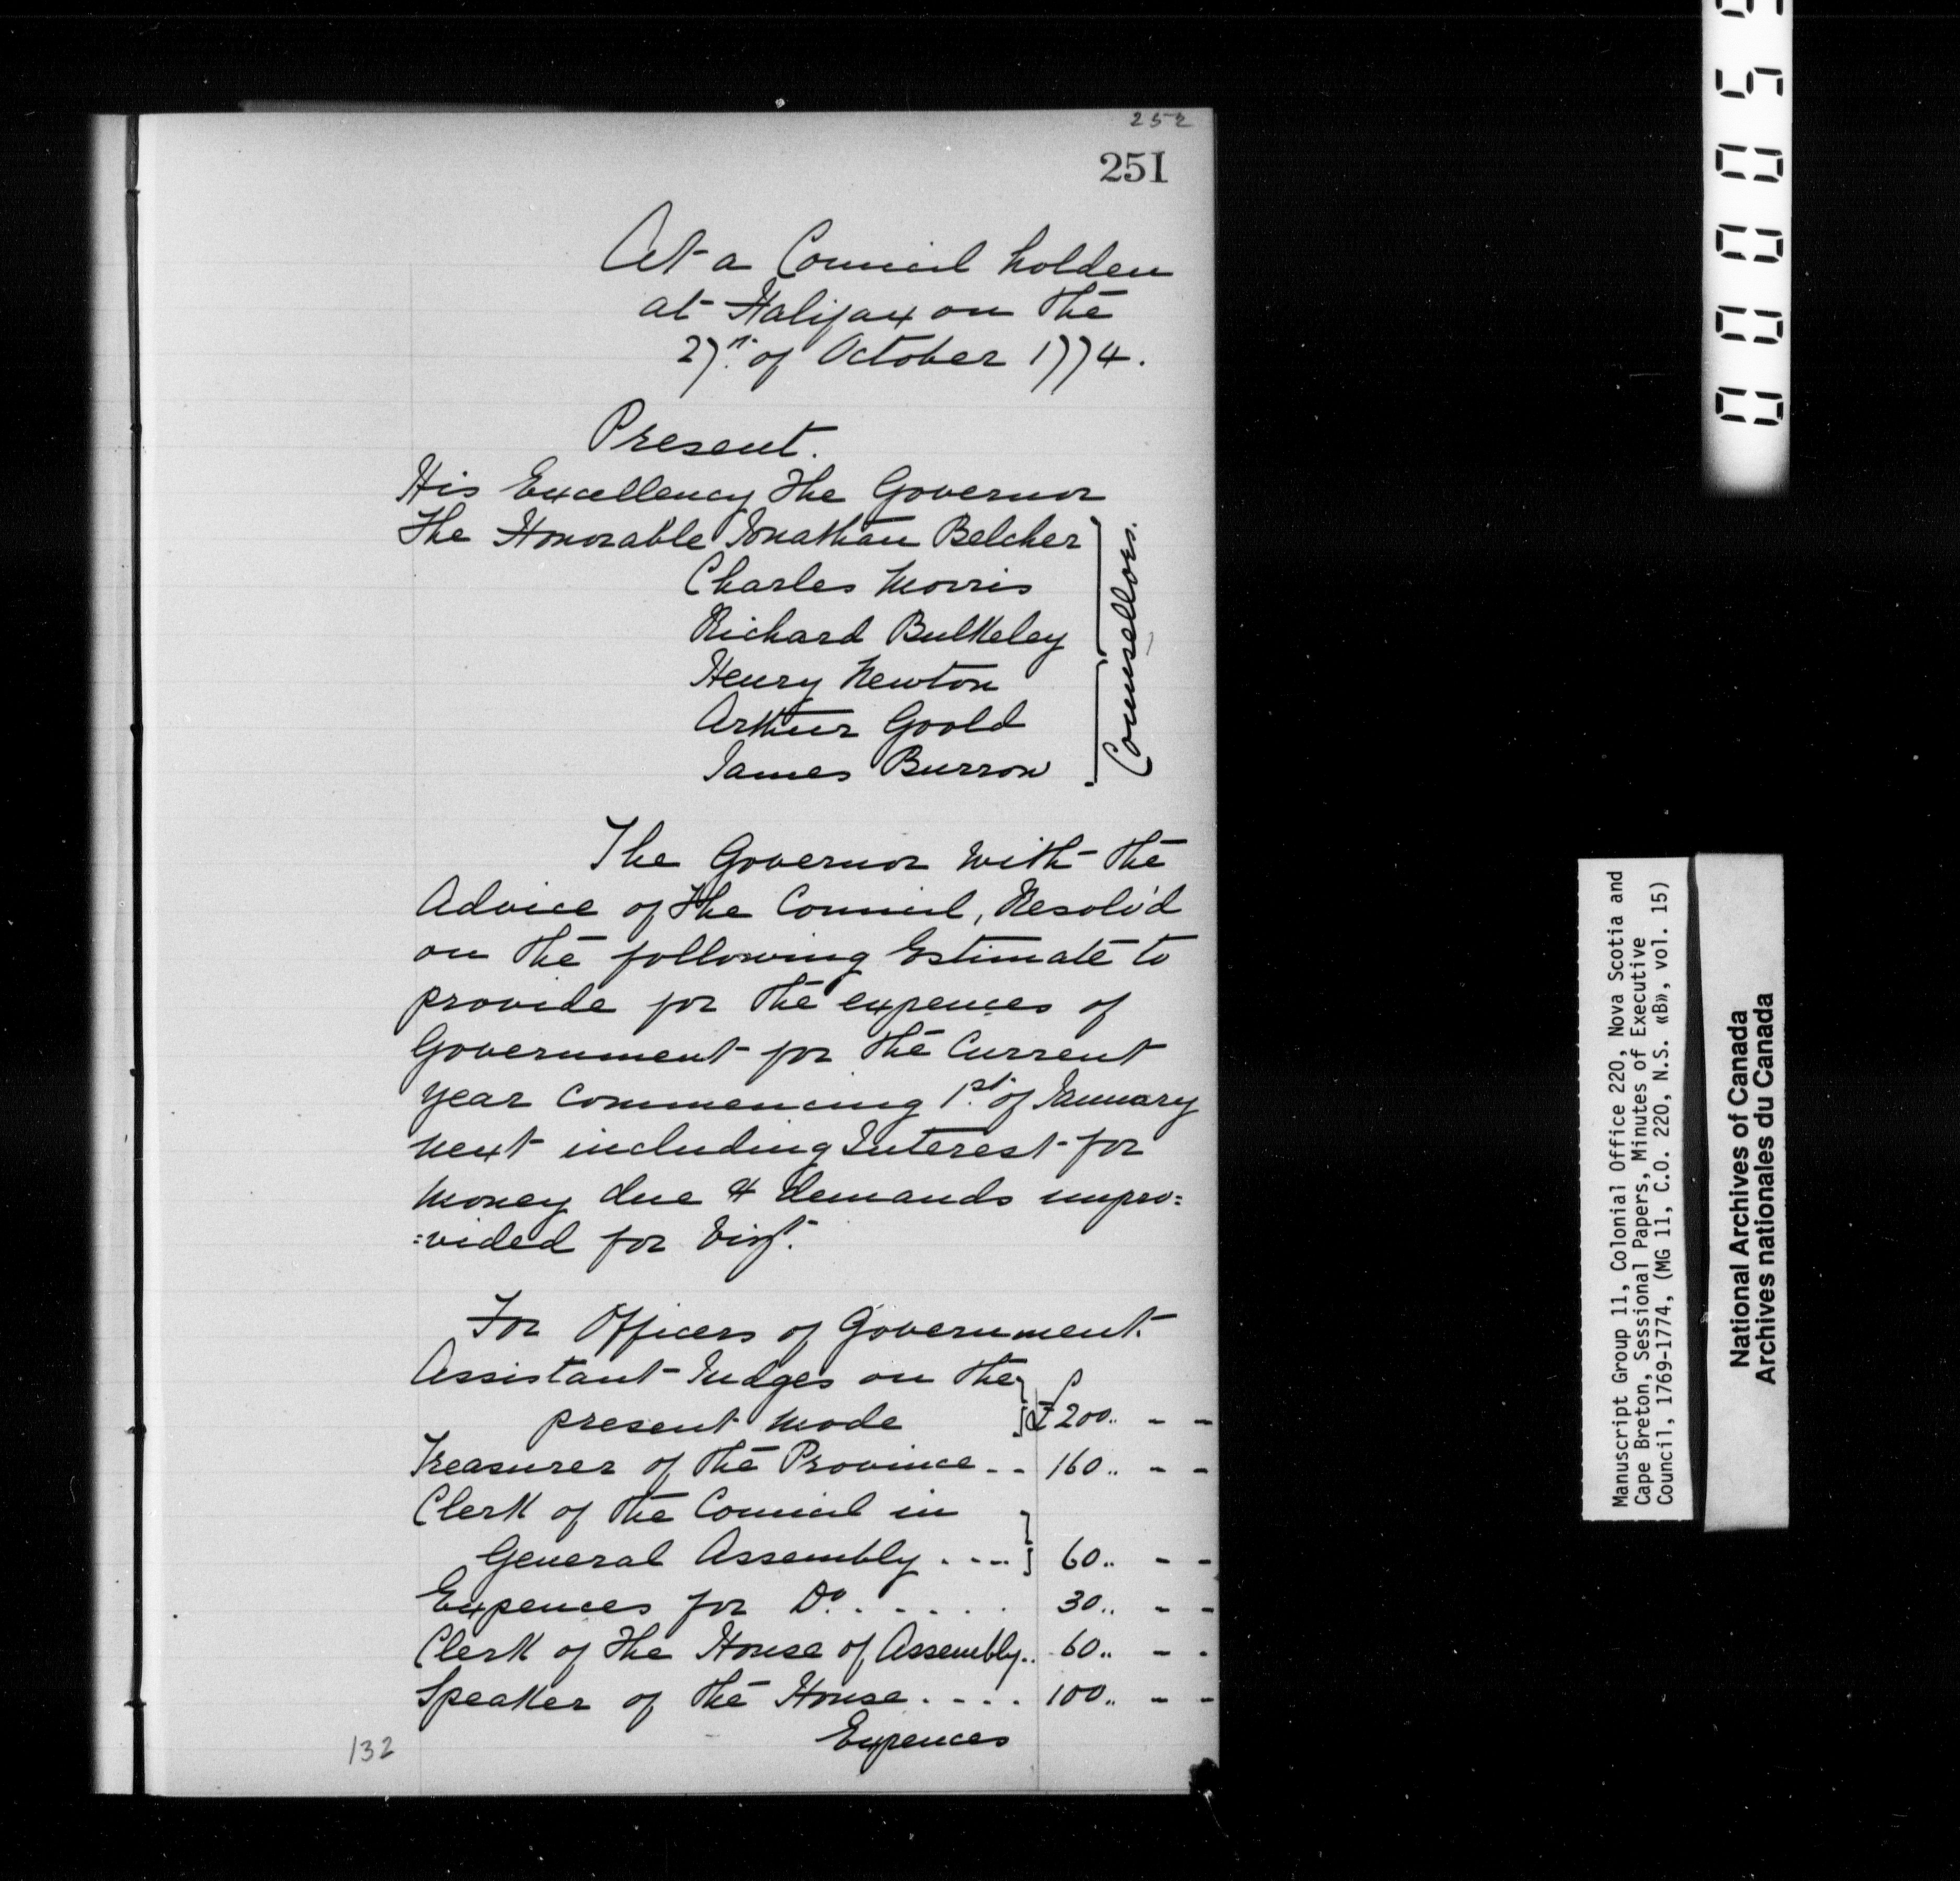 252
251
At a Council holden
at Halifax on the
27th. of October 1774.
Present.
His Excellency the Governor
The Honorable Jonathan Belcher
Charles Morris
Richard Bulkeley
Henry Newton
Arthur Goold
James Burrow
Counsellors.
The Governor with the
Advice of the Council, Resolv'd
on the following Estimate to
provide for the expences of
Government for the Current
year Commencing 1st. of January
next including Interest for
money due & demands unpro=
=vided for Vizt.
For Officers of Government.
Assistant Judges on the
present mode £200.. - -
Treasurer of the Province - - 160.. - -
Clerk of the Council in
General Assembly . - - - 60.. - -
Expences for Do. . . . . . 30.. - -
Clerk of the House of Assembly.. 60.. - -
Speaker of the House . - - . 100.. - -
Expences
132
Manuscript Group 11, Colonial Office 220, Nova Scotia and
Cape Breton, Sessional Papers, Minutes of Executive
Council, 1769-1774, (MG 11, C.O. 220, N.S. «B», vol. 15)
National Archives of Canada
Archives nationales du Canada